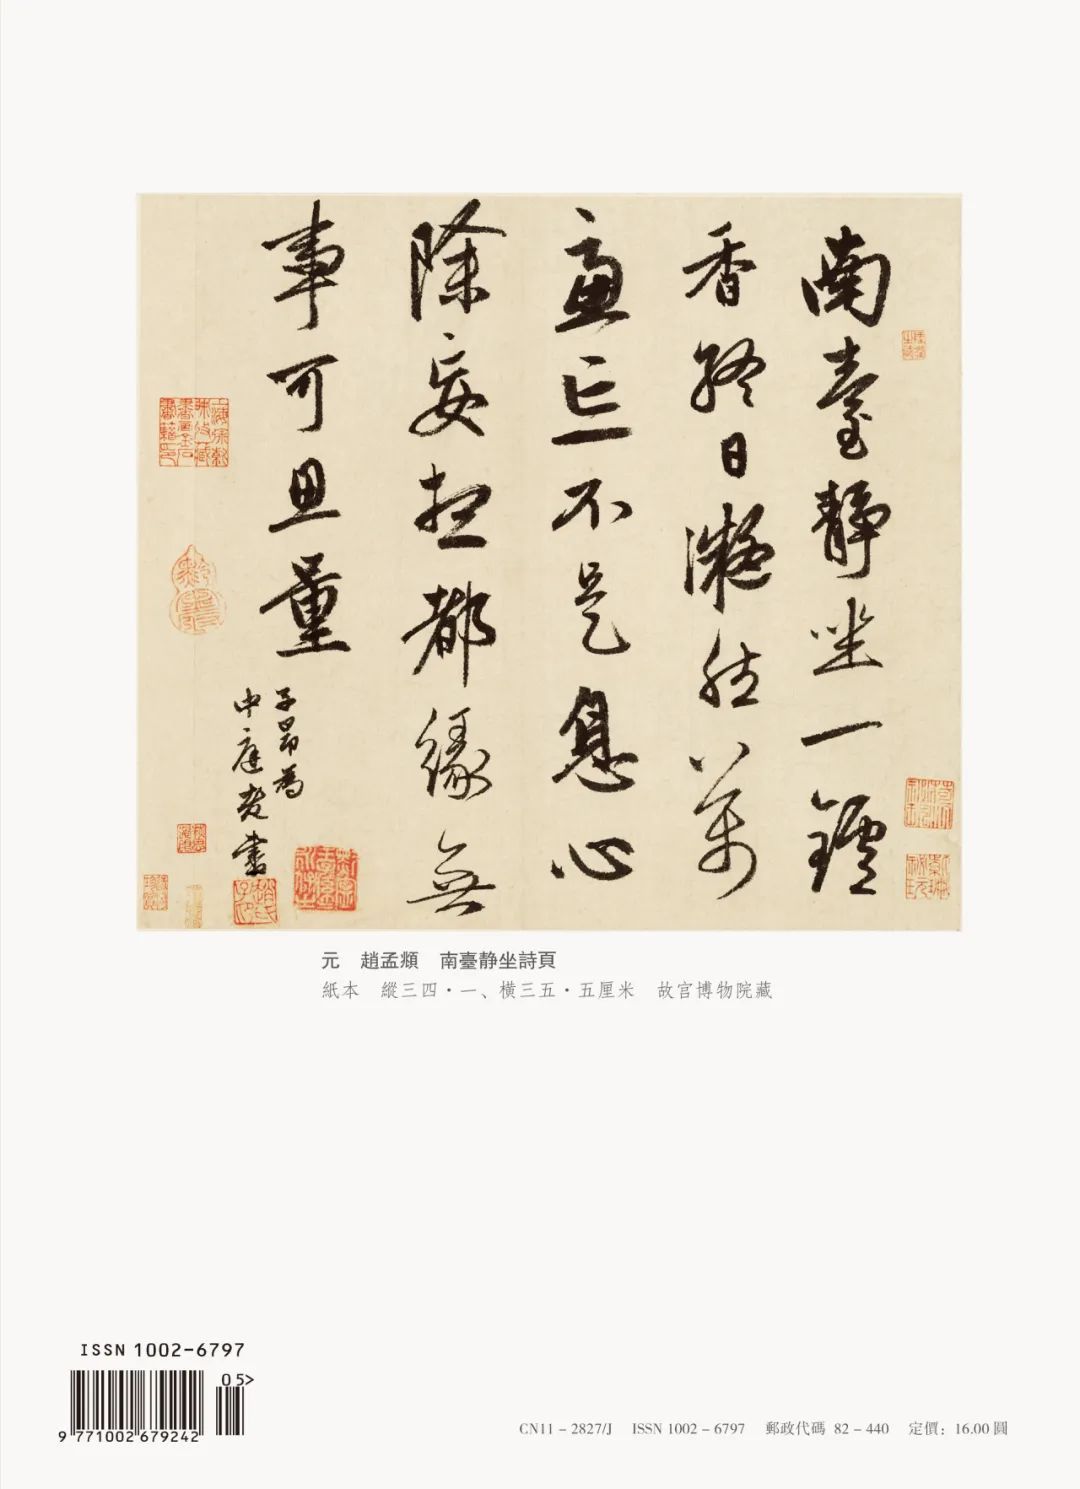 南臺静坐一鑪
香終日凝然萬
慮忘不是息心
除妄想都緣無
事可思量
子昂為
中庭老書
元　趙孟頫　南臺静坐詩頁
紙本　縱三四・一、橫三五・五厘米　故宫博物院藏
ISSN 1002-6797
05>
9 771002 679242
CN11 – 2827/J　ISSN 1002 – 6797　郵政代碼 82 – 440　定價：16.00 圓